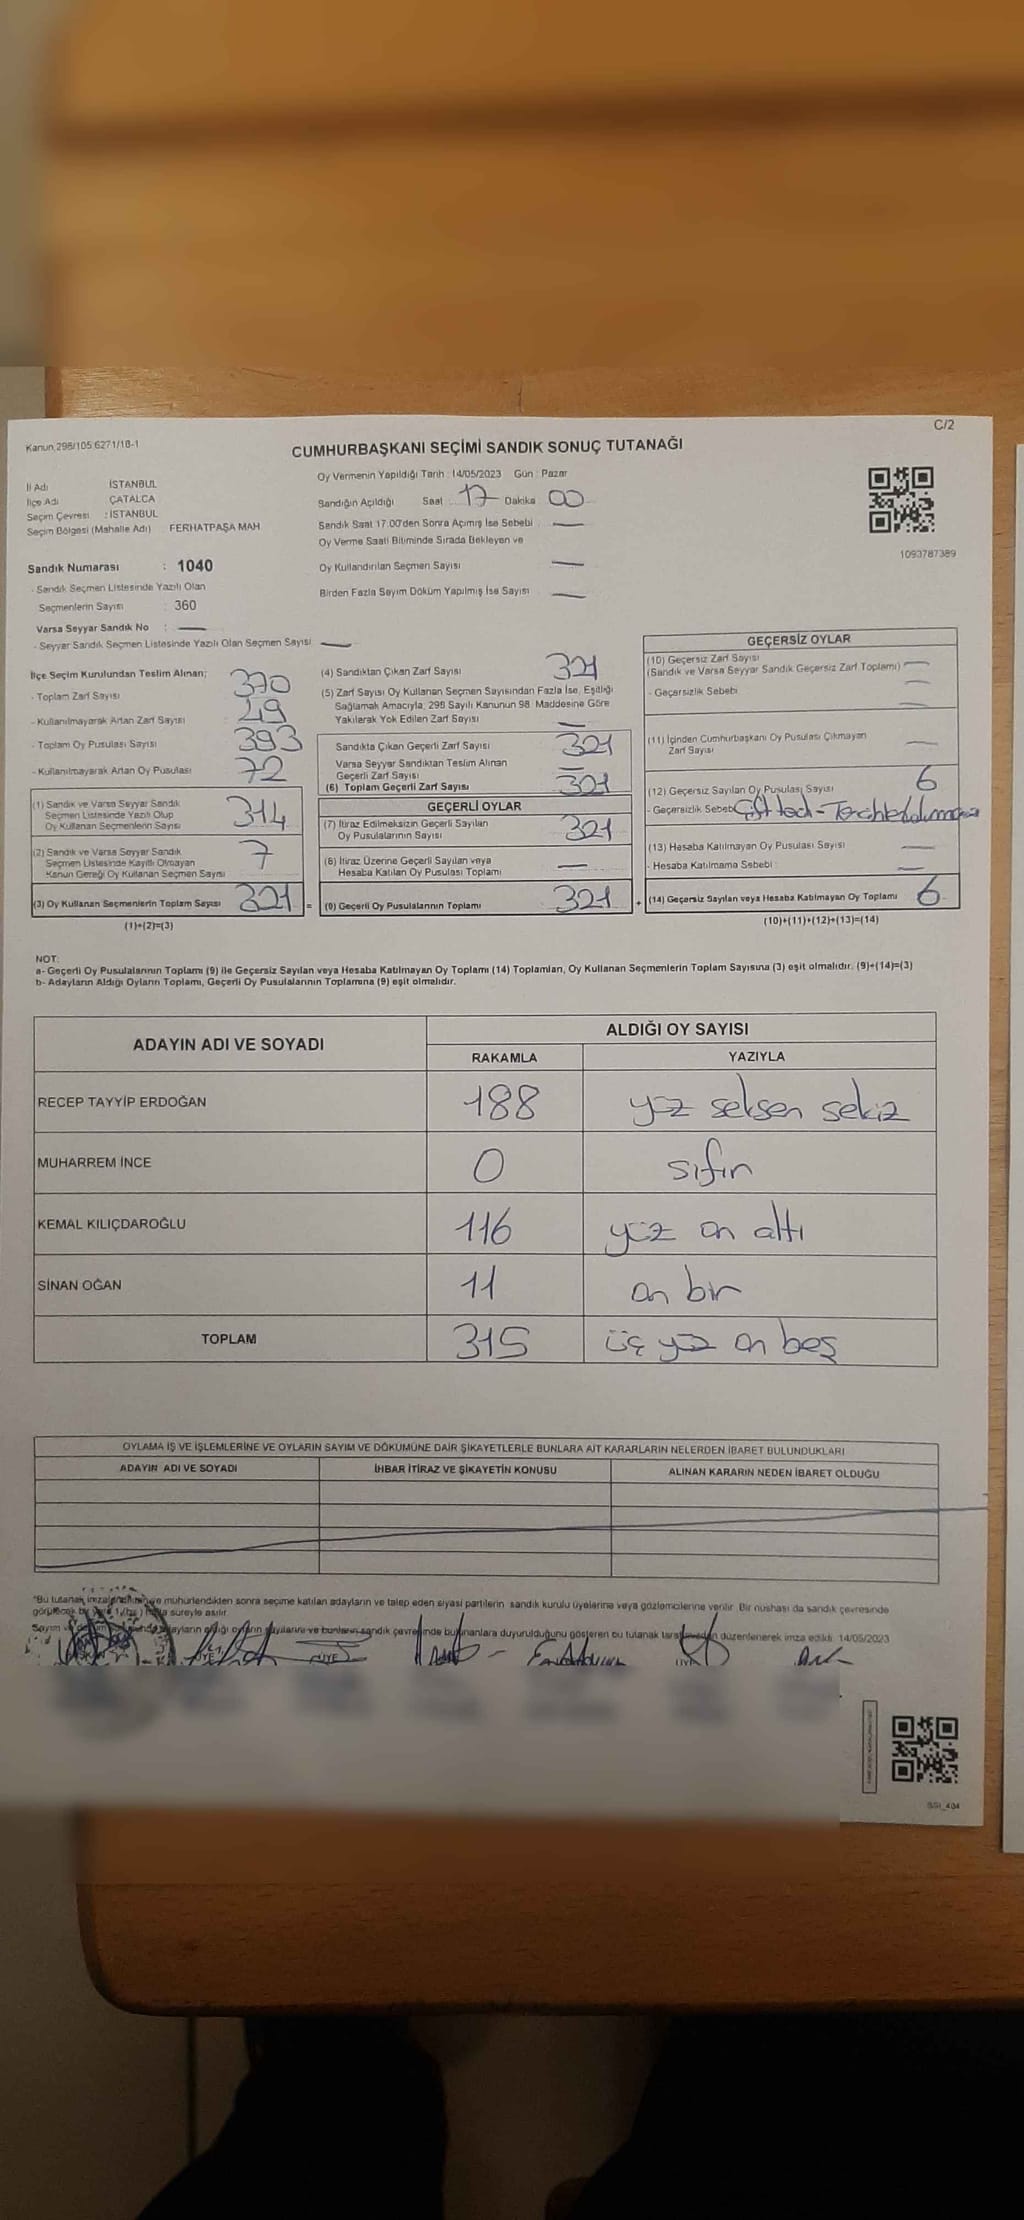 C/2
Kanun 298/105 6271/18-1
CUMHURBAŞKANI SEÇİMİ SANDIK SONUÇ TUTANAĞI
İl Adı : İSTANBUL
İlçe Adı ÇATALCA
Seçim Çevresi : İSTANBUL
Seçim Bölgesi (Mahalle Adı) FERHATPAŞA MAH.
Sandık Numarası : 1040
- Sandık Seçmen Listesinde Yazılı Olan
Seçmenlerin Sayısı : 360
Varsa Seyyar Sandık No : —
- Seyyar Sandık Seçmen Listesinde Yazılı Olan Seçmen Sayısı —
Oy Vermenin Yapıldığı Tarih : 14/05/2023 Gün : Pazar
Sandığın Açıldığı Saat 17 Dakika 00
Sandık Saat 17.00'den Sonra Açımış İse Sebebi —
Oy Verme Saati Bitiminde Sırada Bekleyen ve
Oy Kullandırılan Seçmen Sayısı —
Birden Fazla Sayım Döküm Yapılmış İse Sayısı —
1093787389
İlçe Seçim Kurulundan Teslim Alınan;
- Toplam Zarf Sayısı 370
- Kullanılmayarak Artan Zarf Sayısı : 49
- Toplam Oy Pusulası Sayısı 393
- Kullanılmayarak Artan Oy Pusulası 72
(1) Sandık ve Varsa Seyyar Sandık
Seçmen Listesinde Yazılı Olup
Oy Kullanan Seçmenlerin Sayısı 314
(2) Sandık ve Varsa Seyyar Sandık
Seçmen Listesinde Kayıtlı Olmayan
Kanun Gereği Oy Kullanan Seçmen Sayısı 7
(3) Oy Kullanan Seçmenlerin Toplam Sayısı 321 =
(1)+(2)=(3)
(4) Sandıktan Çıkan Zarf Sayısı 321
(5) Zarf Sayısı Oy Kullanan Seçmen Sayısından Fazla İse, Eşitliği
Sağlamak Amacıyla, 298 Sayılı Kanunun 98. Maddesine Göre
Yakılarak Yok Edilen Zarf Sayısı —
Sandıkta Çıkan Geçerli Zarf Sayısı 321
Varsa Seyyar Sandıktan Teslim Alınan
Geçerli Zarf Sayısı —
(6) Toplam Geçerli Zarf Sayısı 321
GEÇERLİ OYLAR
(7) İtiraz Edilmeksizin Geçerli Sayılan
Oy Pusulalarının Sayısı 321
(8) İtiraz Üzerine Geçerli Sayılan veya
Hesaba Katılan Oy Pusulası Toplamı —
(9) Geçerli Oy Pusulalarının Toplamı 321 +
GEÇERSİZ OYLAR
(10) Geçersiz Zarf Sayısı
(Sandık ve Varsa Seyyar Sandık Geçersiz Zarf Toplamı) —
- Geçersizlik Sebebi —
(11) İçinden Cumhurbaşkanı Oy Pusulası Çıkmayan
Zarf Sayısı —
(12) Geçersiz Sayılan Oy Pusulası Sayısı 6
- Geçersizlik Sebebi
(13) Hesaba Katılmayan Oy Pusulası Sayısı —
- Hesaba Katılmama Sebebi : —
(14) Geçersiz Sayılan veya Hesaba Katılmayan Oy Toplamı 6
(10)+(11)+(12)+(13)=(14)
NOT:
a- Geçerli Oy Pusulalarının Toplamı (9) ile Geçersiz Sayılan veya Hesaba Katılmayan Oy Toplamı (14) Toplamları, Oy Kullanan Seçmenlerin Toplam Sayısına (3) eşit olmalıdır. (9)+(14)=(3)
b- Adayların Aldığı Oyların Toplamı, Geçerli Oy Pusulalarının Toplamına (9) eşit olmalıdır.
ADAYIN ADI VE SOYADI ALDIĞI OY SAYISI
RAKAMLA YAZIYLA
RECEP TAYYİP ERDOĞAN 188 yüz seksen sekiz
MUHARREM İNCE 0 sıfır
KEMAL KILIÇDAROĞLU 116 yüz on altı
SİNAN OĞAN 11 on bir
TOPLAM 315 üç yüz on beş
OYLAMA İŞ VE İŞLEMLERİNE VE OYLARIN SAYIM VE DÖKÜMÜNE DAİR ŞİKAYETLERLE BUNLARA AİT KARARLARIN NELERDEN İBARET BULUNDUKLARI
ADAYIN ADI VE SOYADI İHBAR İTİRAZ VE ŞİKAYETİN KONUSU ALINAN KARARIN NEDEN İBARET OLDUĞU
"Bu tutanak imzalandıktan ve mühürlendikten sonra seçime katılan adayların ve talep eden siyasi partilerin sandık kurulu üyelerine veya gözlemcilerine verilir. Bir nüshası da sandık çevresinde
görülecek bir yere 1 hafta süreyle asılır.
Sayım ve adayların aldığı oyların sayılarını ve bunların sandık çevresinde bulunanlara duyurulduğunu gösteren bu tutanak düzenlenerek imza edildi. 14/05/2023
ÜYE ÜYE ÜYE